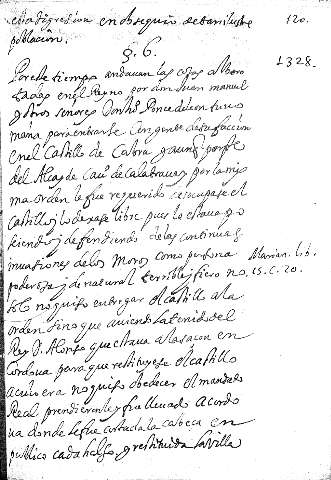 esta digresion en obsequio de tan ilustre
120.
poblacion.
§. 6.
1328.
Por este tiempo andauan las cosas alboro
tadas en el Reyno por don Juan manuel
y otros señores Don Ponce
maña para entrarse con gente de su faccion
en el Castillo de Cabra y aunq por
del Alcayde Cauº de Calatraua por la mis
ma orden le fue requerido desocupase el
Castillo y lo dexase libre pues lo estaua po
siendo y defendiendo de las continuas
inuasiones de los Moros como persona
poderosa y de natural terrible y fiero no
Marian. lib.
15. c. 20.
solo no quiso entregar el castillo a la
orden sino que auiendo la tenido del
Rey D. Alonso que estaua a la sacon en
Cordoua para que restituyese el castillo
a cuio era no quiso obedecer el mandato
Real prendieronle y fue lleuado a Cordo
ua donde le fue cortada la caueça en
publico cadahalso y restituida la Villa